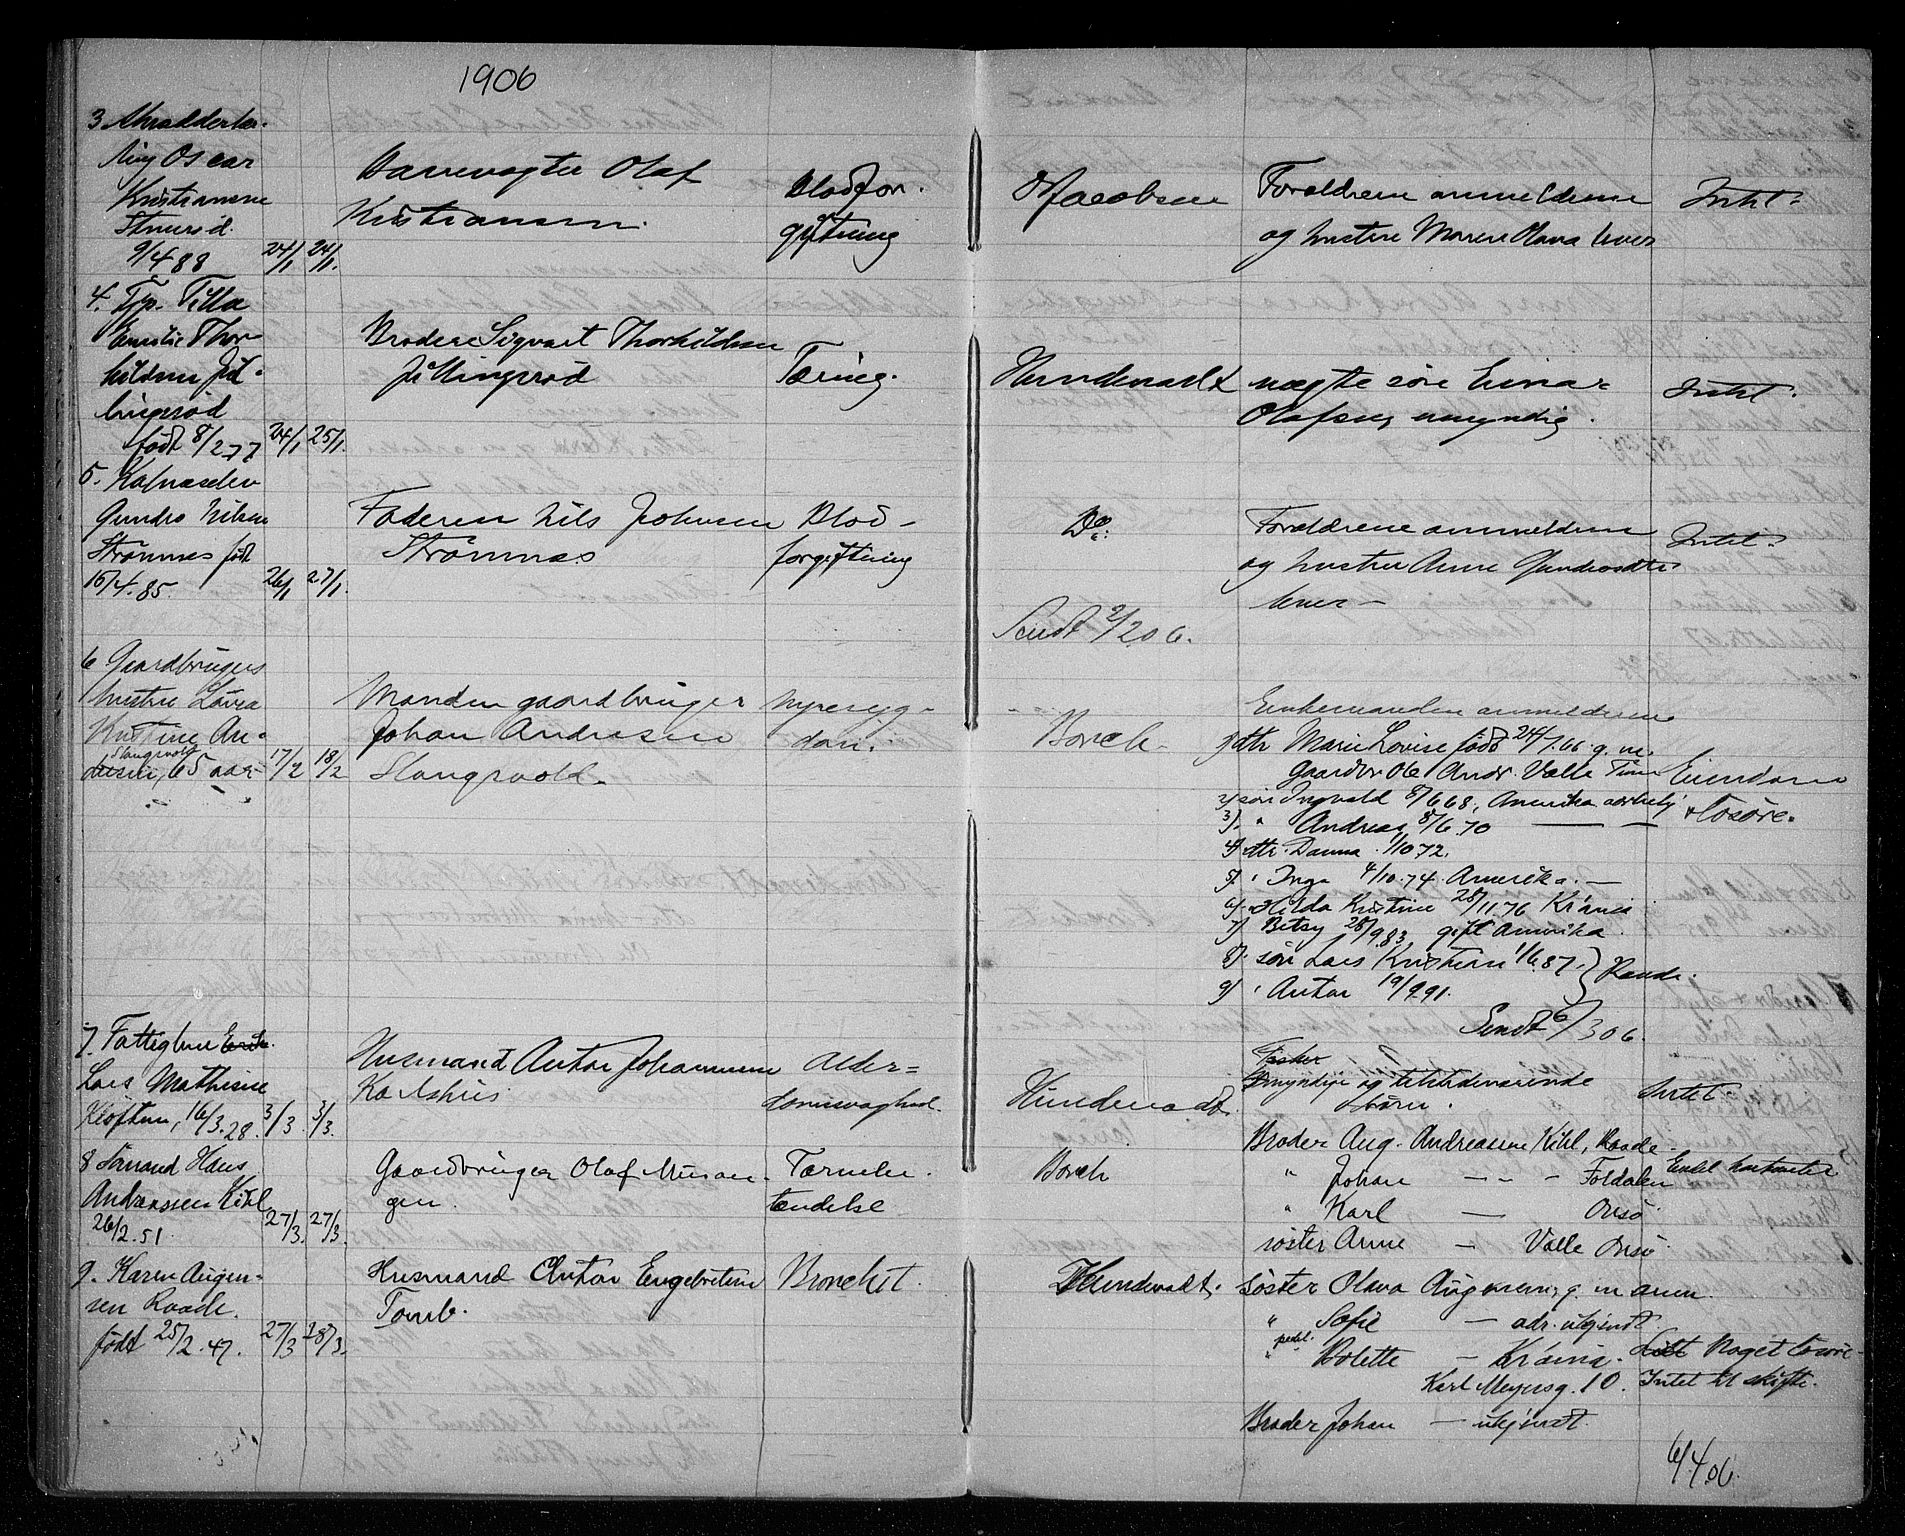 1906
3 Skrædderlær-
ling Oscar
Kristiansen
9/4 88 24/1 24/1.
Banevogter Olaf
Kristiansen.
Blodfor-
giftning
O Jacobsen
Forældrene anmelderen
og hustru Maren Olava lever
Intet.
4. Tjp. Tilla
Emilie Thor-
kildsen Jil-
lingsrød
født 8/2 77 24/1 25/1.
Broderen Sigvart Thorkildsen
Jillingsrød
Tæring.
Hundevadt
uægte søn Einar
Olafsen, umyndig.
Intet.
5.
Gundro Nilsen
Strømnes født
15/4.85. 26/1 27/1.
Faderen Nils Johnsen
Strømnæs
Blod-
forgiftning
Do:
Forældrene anmelderen
og hustru Anne Gundrosdtr
lever-
Intet.
Sendt 2/2 06.
6 Gaardbrugers
hustru Lovisa
Kristine An-
Slangsvold
dresen, 65 aar 17/2 18/2
Manden gaardbruger
Johan Andresen
Slangsvold.
nyresyg-
dom.
Borch.
Enkemanden anmelderen
1) dtr Marie Lovise født 24/1.66 g. m.
Gaardbr Ole Andr. Valle
2) søn Ingvald 8/6 68, Amerika
3). " Andreas 8/6.70 — —
4) dtr. 1/10 72.
5) " Inga 4/10.74. Amerika. —
6). " Hilda Kristine 28/11.76 Kr.ania
7) Betsy 28/9.83. gift Amerika.
8). søn Lars Kristian 1/6.87. } Raade.
9) " Anton 19/9.91.
Eiendom
+ løsøre.
Sendt 6/3 06.
7. Fattiglem
Lars Mathisen
Kløften, 16/3.28. 3/3. 3/3.
Husmand Anton Johannesen
Karlshus
Alder-
domssvaghed.
Hundevadt.
Myndige og tilstedeværende
Børn.
Intet.
8 Sømand Hans
Andreassen Kihl
26/2.51. 27/3. 27/3.
Gaardbruger Olaf Missin-
gen.
Tarmbe-
tændelse
Borch
Broder Aug. Andreasen Kihl, Raade
" Johan — " — Foldalen
" Karl — Onsø
søster Anne — Valle Onsø
9. Karen Augen-
sen Raade.
født 25/2.47. 27/3 28/3.
Husmand Anton Engebretsen
Tomb.
Bronchit.
Hundevadt.
søster Olava Augensen, g. m
" Sofie — adr. ukjendt.
" Bolette — Kr.ania.
Karl Meyersg. 10.
Broder Johan — ukjendt.
Noget løsøre-
Intet til skifte.
6/4.06.